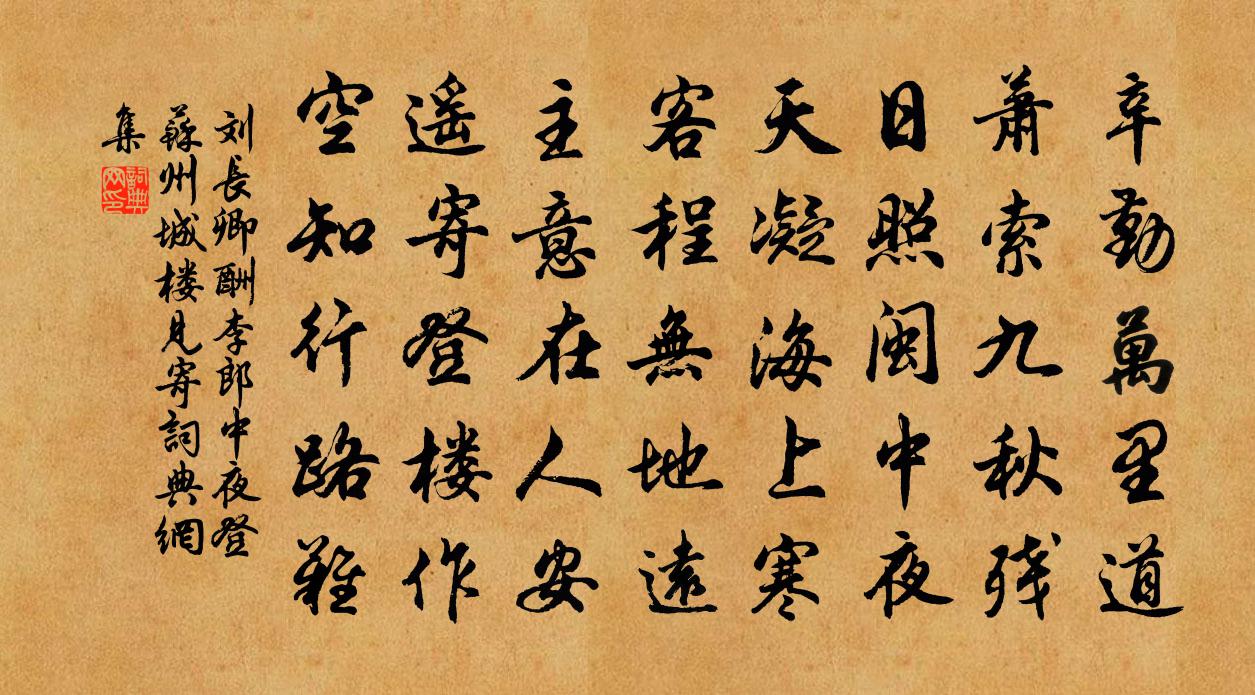 辛勤萬里道
萧索九秋残
日照闽中夜
天凝海上寒
客程無地遠
主意在人安
遥寄登楼作
空知行路難
刘長卿酬李郎中夜登
蘇州城楼見寄詞典網
集
詞典
网印